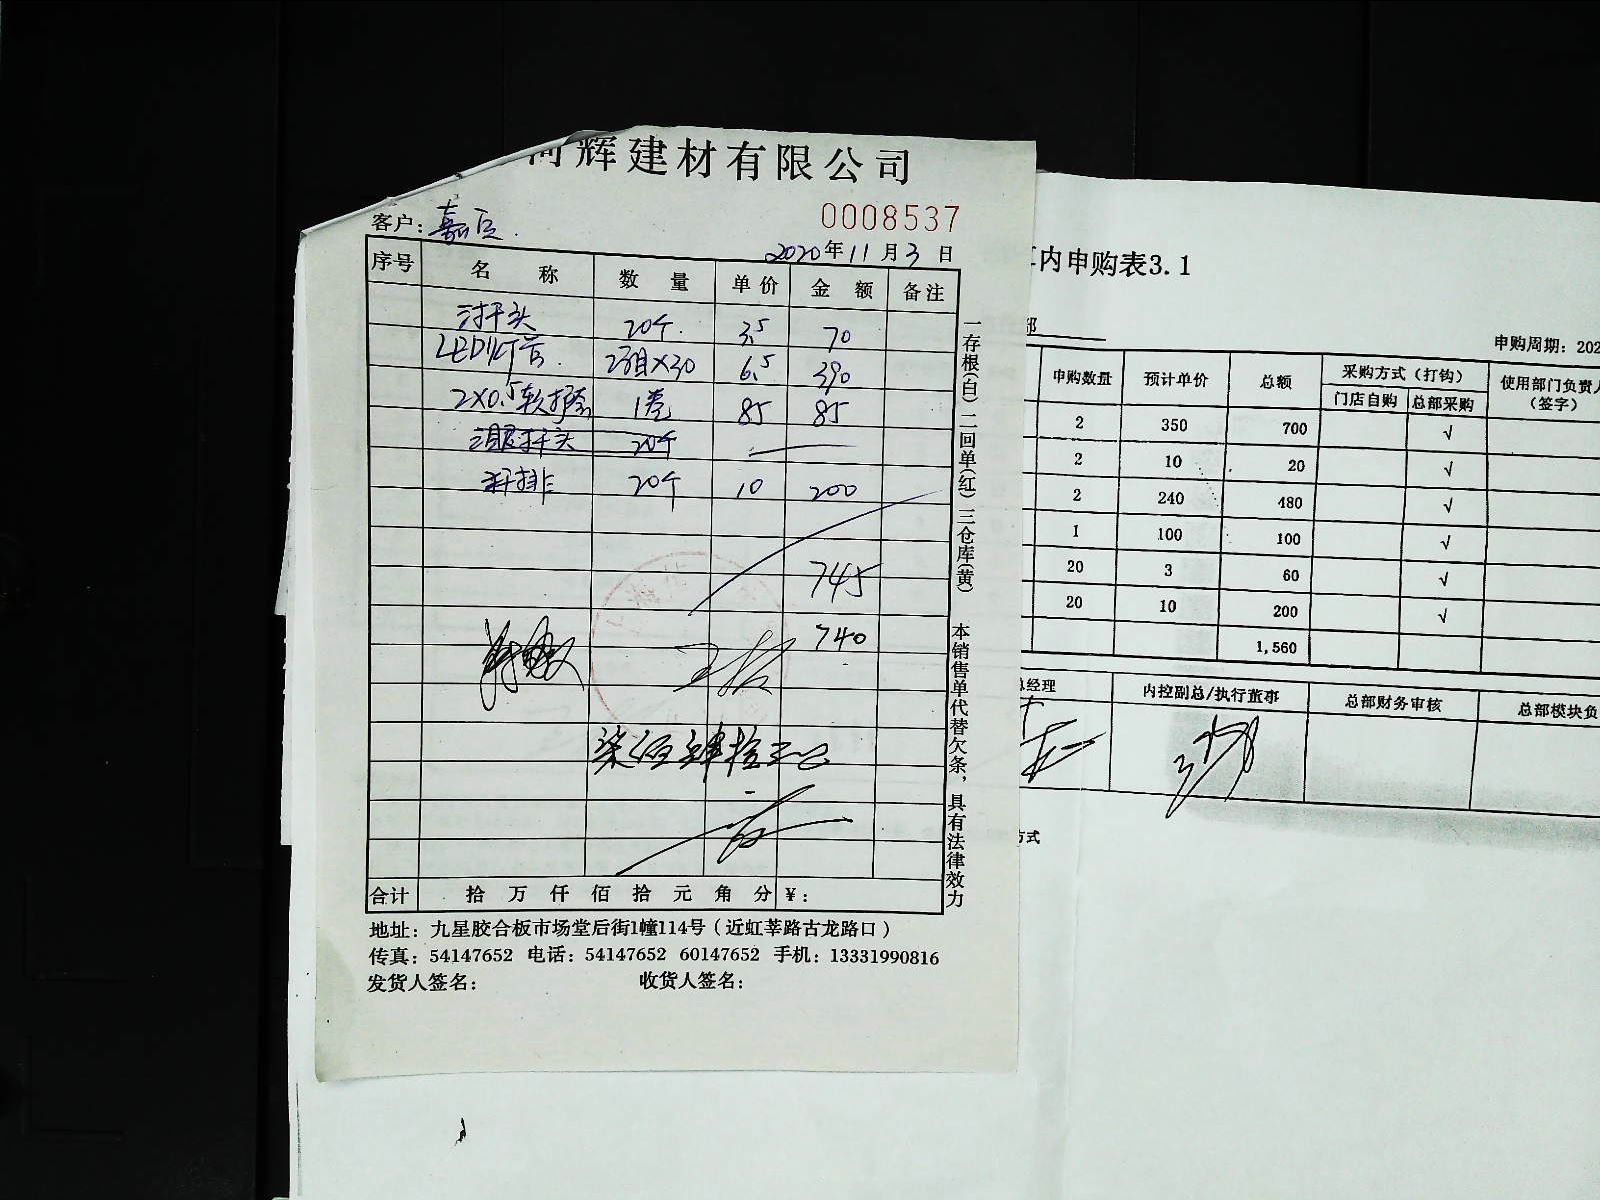 辉建材有限公司
0008537
客户：嘉定
2020年11月3日
序号 名称 数量 单价 金额 备注
20个 3.5 70
LED灯 2组×30 6.5 390
2×0.5软护套 1卷 85 85
20个 —
20个 10 200
745
740
柒佰肆拾
合计 拾 万 仟 佰 拾 元 角 分 ¥：
一存根(白)二回单(红)三仓库(黄) 本销售单代替欠条，具有法律效力
地址：九星胶合板市场堂后街1幢114号（近虹莘路古龙路口）
传真：54147652 电话：54147652 60147652 手机：13331990816
发货人签名： 收货人签名：
内申购表3.1
部
申购周期：202
申购数量 预计单价 总额 采购方式（打钩） 使用部门负责人（签字）
门店自购 总部采购
2 350 700 √
2 10 20 √
2 240 480 √
1 100 100 √
20 3 60 √
20 10 200 √
1,560
总经理 内控副总/执行董事 总部财务审核 总部模块负
方式